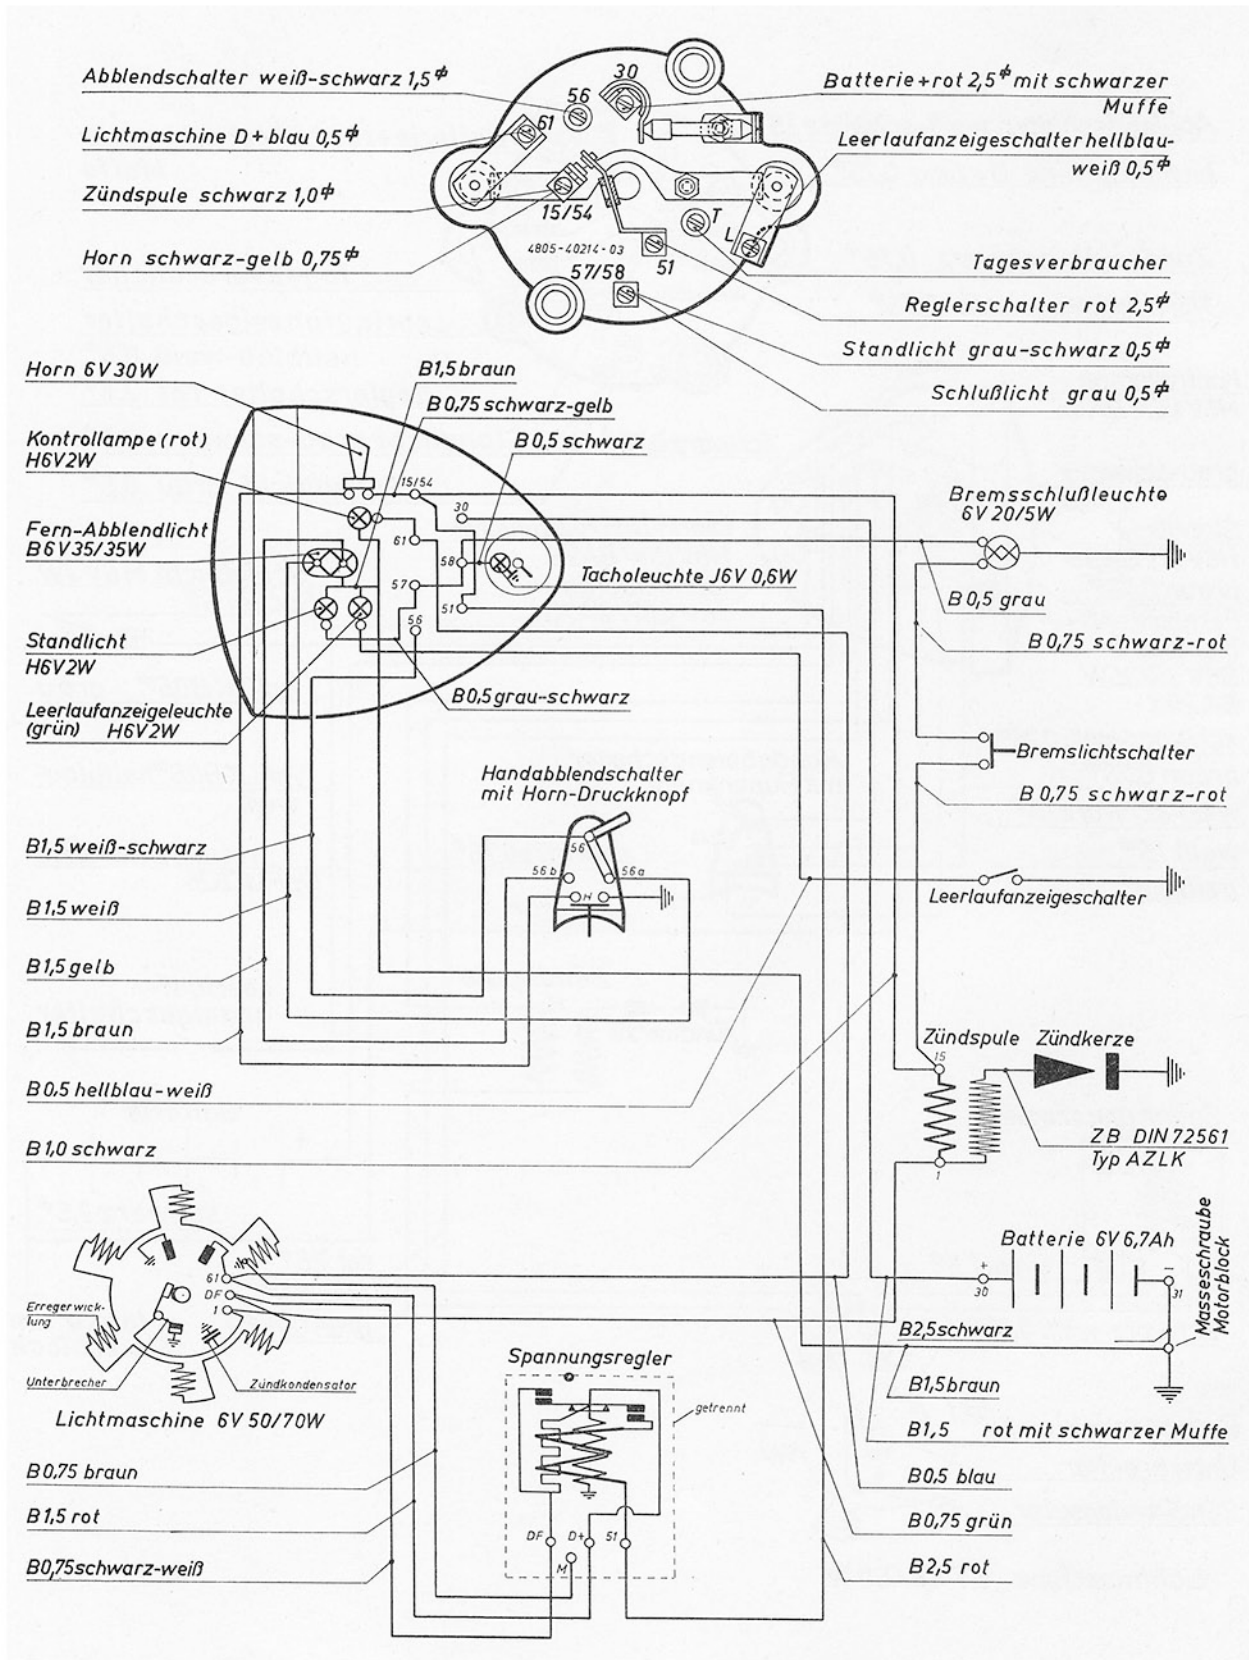 Abblendschalter weiß-schwarz 1,5ф
Lichtmaschine D+ blau 0,5ф
Zündspule schwarz 1,0ф
Horn schwarz-gelb 0,75ф
30
56
61
15/54
4805-40214-03
57/58
51
T
L
Batterie+rot 2,5ф mit schwarzer
Muffe
Leerlaufanzeigeschalter hellblau-
weiß 0,5ф
Tagesverbraucher
Reglerschalter rot 2,5ф
Standlicht grau-schwarz 0,5ф
Schlußlicht grau 0,5ф
Horn 6V30W
Kontrollampe (rot)
H6V2W
Fern-Abblendlicht
B6V35/35W
Standlicht
H6V2W
Leerlaufanzeigeleuchte
(grün) H6V2W
B1,5 braun
B0,75 schwarz-gelb
B0,5 schwarz
15/54
30
61
58
57
51
56
Tacholeuchte J6V 0,6W
B0,5 grau-schwarz
Bremsschlußleuchte
6V 20/5W
B0,5 grau
B0,75 schwarz-rot
Bremslichtschalter
B0,75 schwarz-rot
Leerlaufanzeigeschalter
Handabblendschalter
mit Horn-Druckknopf
56
56b
56a
H
B1,5 weiß-schwarz
B1,5 weiß
B1,5 gelb
B1,5 braun
B0,5 hellblau-weiß
B1,0 schwarz
Zündspule Zündkerze
15
1
ZB DIN 72561
Typ AZLK
Batterie 6V 6,7Ah
+
30
-
31
Masseschraube
Motorblock
B2,5 schwarz
B1,5 braun
B1,5 rot mit schwarzer Muffe
B0,5 blau
B0,75 grün
B2,5 rot
61
DF
1
Erregerwick-
lung
Unterbrecher
Zündkondensator
Lichtmaschine 6V 50/70W
B0,75 braun
B1,5 rot
B0,75 schwarz-weiß
Spannungsregler
getrennt
DF
D+
51
M